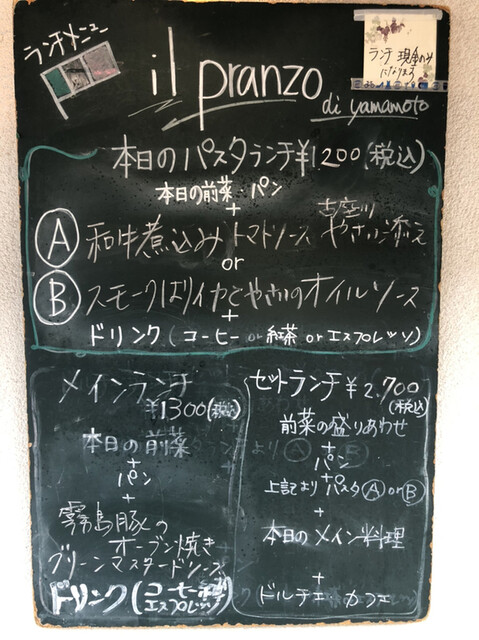 ランチメニュー
il pranzo
di yamamoto
ランチ 現金のみ
になります
本日のパスタランチ ¥1200(税込)
本日の前菜・パン
+
Ⓐ 和牛煮込みトマトソース 古座川やさい添え
or
Ⓑ スモークばりイカとやさいのオイルソース
+
ドリンク(コーヒー or 紅茶 or エスプレッソ)
メインランチ
¥1300(税込)
本日の前菜
+
パン
+
霧島豚の
オーブン焼き
グリーンマスタードソース
ドリンク(コーヒー 紅茶
エスプレッソ)
セットランチ ¥2.700
(税込)
前菜の盛りあわせ
+
パン
+
上記より パスタ Ⓐ or Ⓑ
+
本日のメイン料理
+
ドルチェ・カフェ